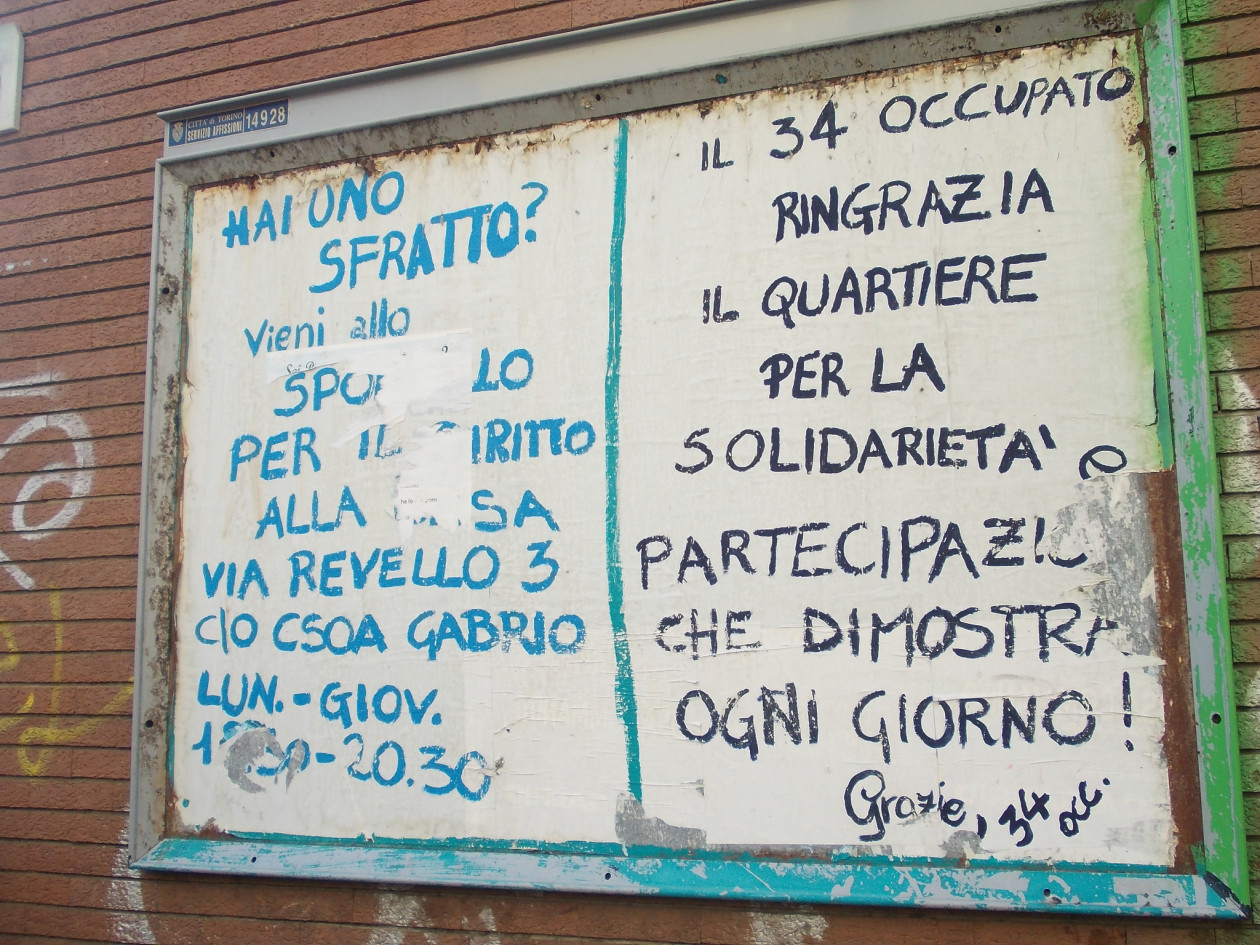 CITTA' di TORINO
SERVIZIO AFFISSIONI
14928
HAI UNO
SFRATTO?
Vieni allo
PER IL
ALLA
VIA REVELLO 3
c/o CSOA GABRIO
LUN.-GIOV.
-20.30
IL 34 OCCUPATO
RINGRAZIA
IL QUARTIERE
PER LA
SOLIDARIETA' e
CHE DIMOSTRA
OGNI GIORNO!
Grazie, 34 occ.